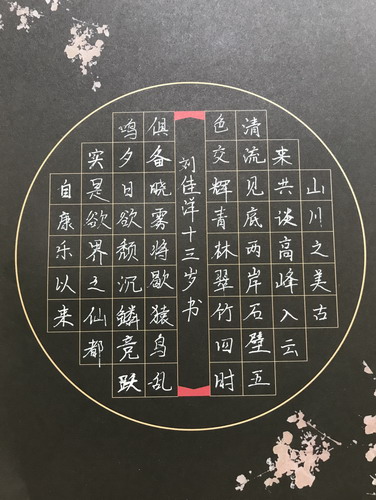 山川之美古
来共谈高峰入云
清流见底两岸石壁五
色交辉青林翠竹四时
刘佳洋十三岁书
俱备晓雾将歇猿鸟乱
鸣夕日欲颓沉鳞竞跃
实是欲界之仙都
自康乐以来